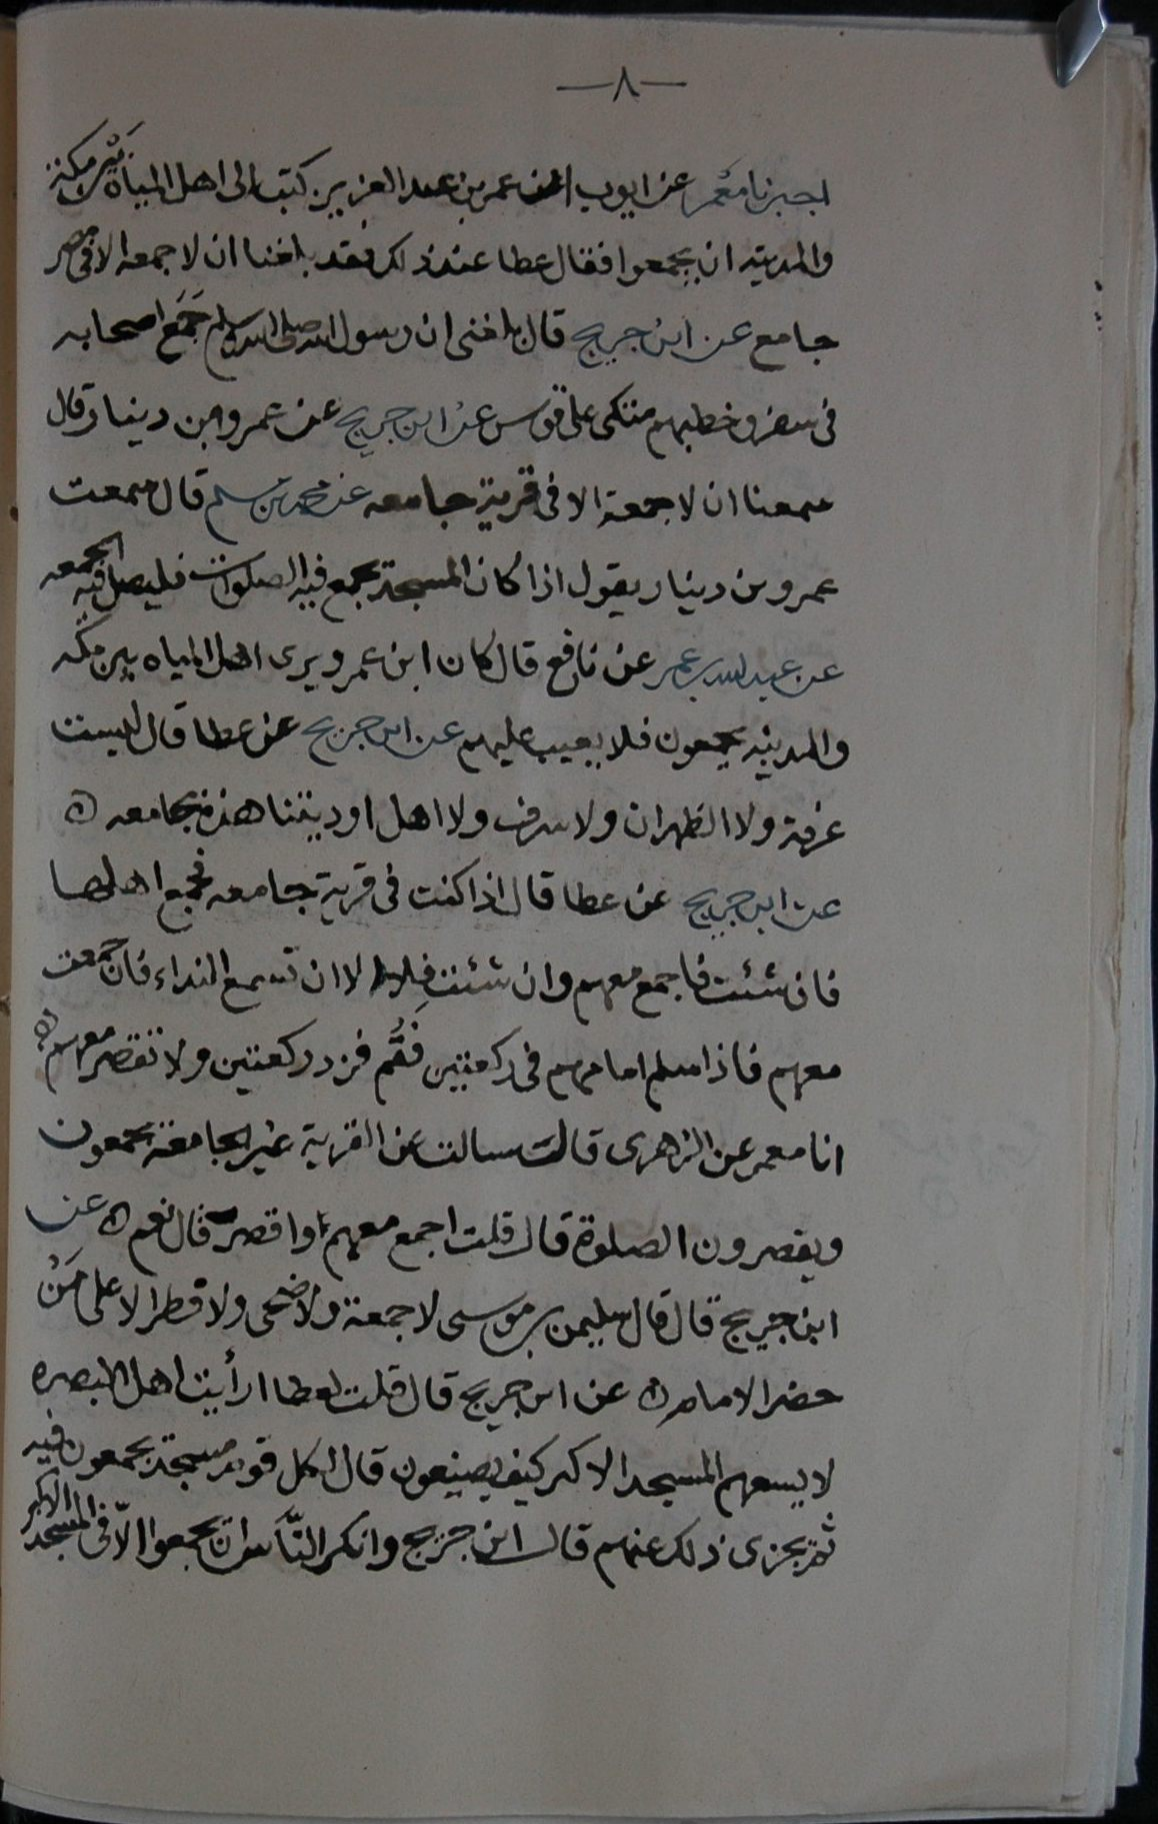 —٨—
اخبرنا معمر عن ايوب ان عمر بن عبد العزيز كتب الى اهل المياه بين مكة
والمدينه ان يجمعوا فقال عطا عند ذلك فقد بلغنا ان لا جمعه الا فى مصر
جامع عن ابن جريج قال بلغنى ان رسول الله صلى الله عليه وسلم جَمَع اصحابه
فى سفر وخطبهم متكى على قوس عن ابن جريج عن عمرو بن دينار قال
سمعنا ان لا جمعة الا فى قرية جامعه عن محمد بن مسلم قال سمعت
عمرو بن دينار يقول اذا كان المسجد يجمع فيه الصلوات فليصل فيه الجمعه
عن عبد الله بن عمر عن نافع قال كان ابن عمر ويرى اهل المياه بين مكه
والمدينه يجمعون فلا يعيب عليهم عن ابن جريج عن عطا قال ليست
عرفة ولا الظهران ولا سرف ولا اهل اوديتنا هذه بجامعه ه
عن ابن جريج عن عطا قال اذا كنت فى قرية جامعه فجمع اهلها
فان شئت فاجمع معهم وان شئت فلا الا ان تسمع النداء فان جمعت
معهم فاذا سلم امامهم فى ركعتين فَقُم فزد ركعتين ولا تقصر معهم ه
انا معمر عن الزهرى قال سالت عن القرية غير الجامعة يجمعون
ويقصرون الصلوة قال قلت اجمع معهم واقصر قال نعم ه عن
ابن جريج قال قال سليمن بن موسى لا جمعة ولا اضحى ولا فطر الا على مَنْ
حضر الامام ه عن ابن جريج قال قلت لعطا ارأيت اهل البصره
لا يسعهم المسجد الاكبر كيف يصنعون قال لكل قوم مسجد يجمعون فيه
ثم يجزى ذلك عنهم قال ابن جريج وانكر النَّاس ان يجمعوا الّا فى المسجد الاكبر